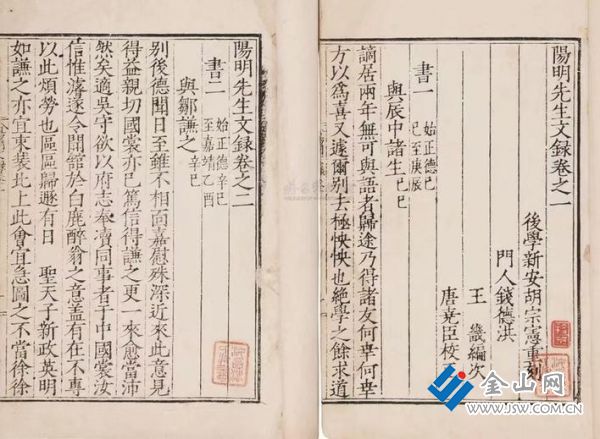 陽明先生文録卷之一
後學新安胡宗憲重刻
門人錢德洪
王畿編次
唐堯臣校正
書一 始正德己巳至庚辰
與辰中諸生 己巳
謫居兩年無可與語者歸途乃得諸友何幸何幸
方以為喜又遽爾别去極怏怏也絶學之餘求道
陽明先生文録卷之二
書二 始正德辛巳至嘉靖乙酉
與鄒謙之 辛巳
别後德聞日至雖不相面嘉慰殊深近來此意見
得益親切國裳亦已篤信得謙之更一來愈當沛
然矣適吳守欲以府志奉瀆同事者于中國裳汝
信惟濬遂令開舘於白鹿醉翁之意蓋有在不專
以此煩勞也區區歸遯有日 聖天子新政英明
如謙之亦宜束裝北上此會宜急圖之不當徐徐
金山网
WWW.JSW.COM.CN